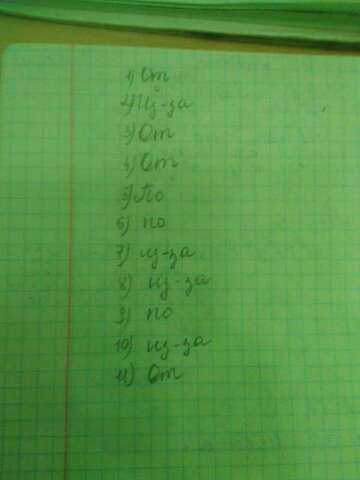 1) От
2) Из-за
3) От
4) От
5) По
6) по
7) из-за
8) из-за
9) по
10) из-за
11) От